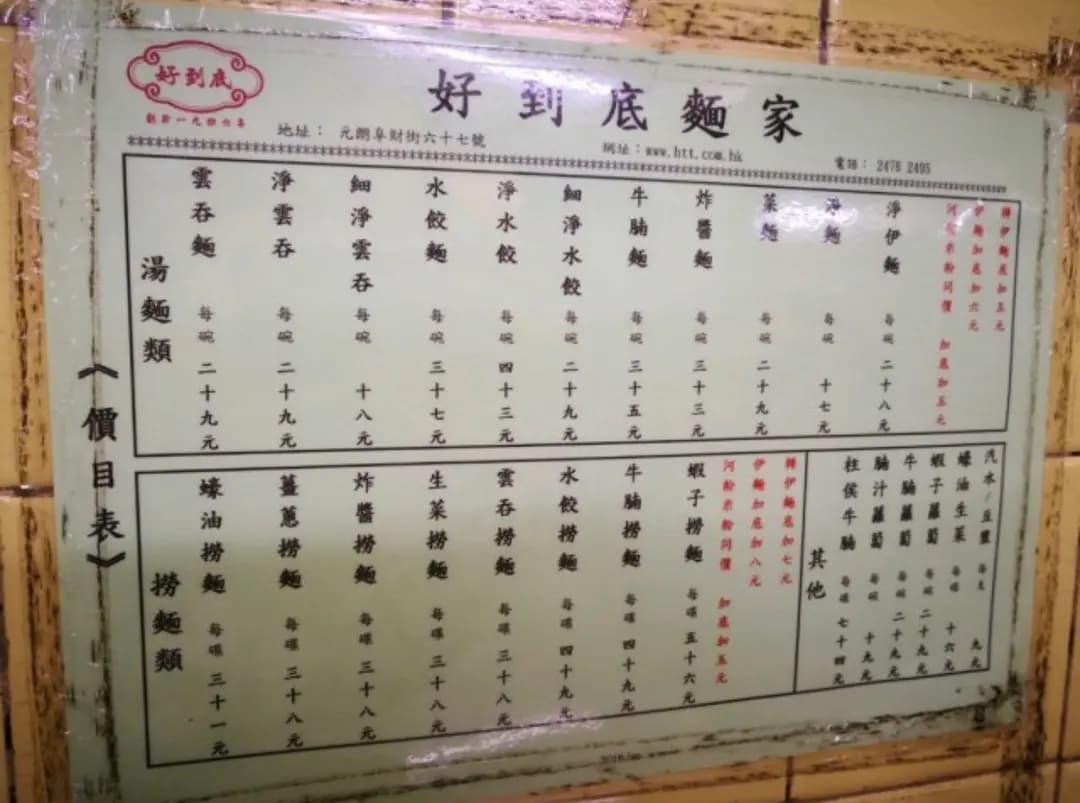 好到底
創於一九四六年
好到底麵家
地址： 元朗阜財街六十七號
網址：www.htt.com.hk
電話： 2476 2495
《價目表》
湯麵類
雲吞麵 每碗 二十九元
淨雲吞 每碗 二十九元
細淨雲吞 每碗 十八元
水餃麵 每碗 三十七元
淨水餃 每碗 四十三元
細淨水餃 每碗 二十九元
牛腩麵 每碗 三十五元
炸醬麵 每碗 三十三元
菜麵 每碗 二十九元
淨麵 每碗 十七元
淨伊麵 每碗 二十八元
河粉米粉同價 加底加五元
伊麵加底加六元
轉伊麵底加五元
撈麵類
蠔油撈麵 每碟 三十一元
薑蔥撈麵 每碟 三十八元
炸醬撈麵 每碟 三十八元
生菜撈麵 每碟 三十八元
雲吞撈麵 每碟 三十八元
水餃撈麵 每碟 四十九元
牛腩撈麵 每碟 四十九元
蝦子撈麵 每碟 五十六元
河粉米粉同價 加底加五元
伊麵加底加八元
轉伊麵底加七元
其他
柱侯牛腩 每碟 七十四元
腩汁蘿蔔 每碗 十九元
牛腩蘿蔔 每碗 二十九元
蝦子蘿蔔 每碗 二十九元
蠔油生菜 每碟 十六元
汽水/豆漿 每支 九元